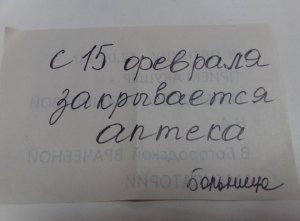 с 15 февраля
закрывается
аптека
больница